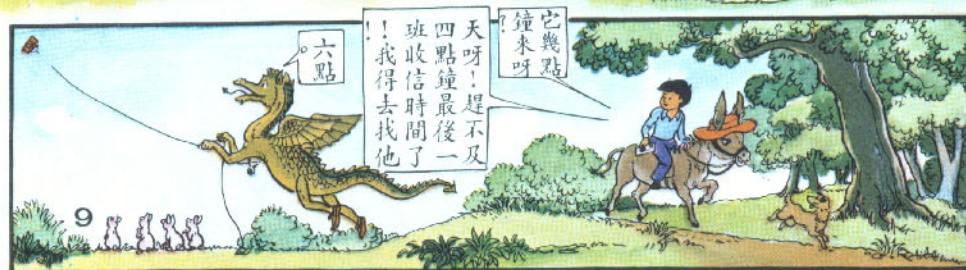 它幾點
鐘來呀
?
天呀！趕不及
四點鐘最後一
班收信時間了
！！我得去找他
六點
9